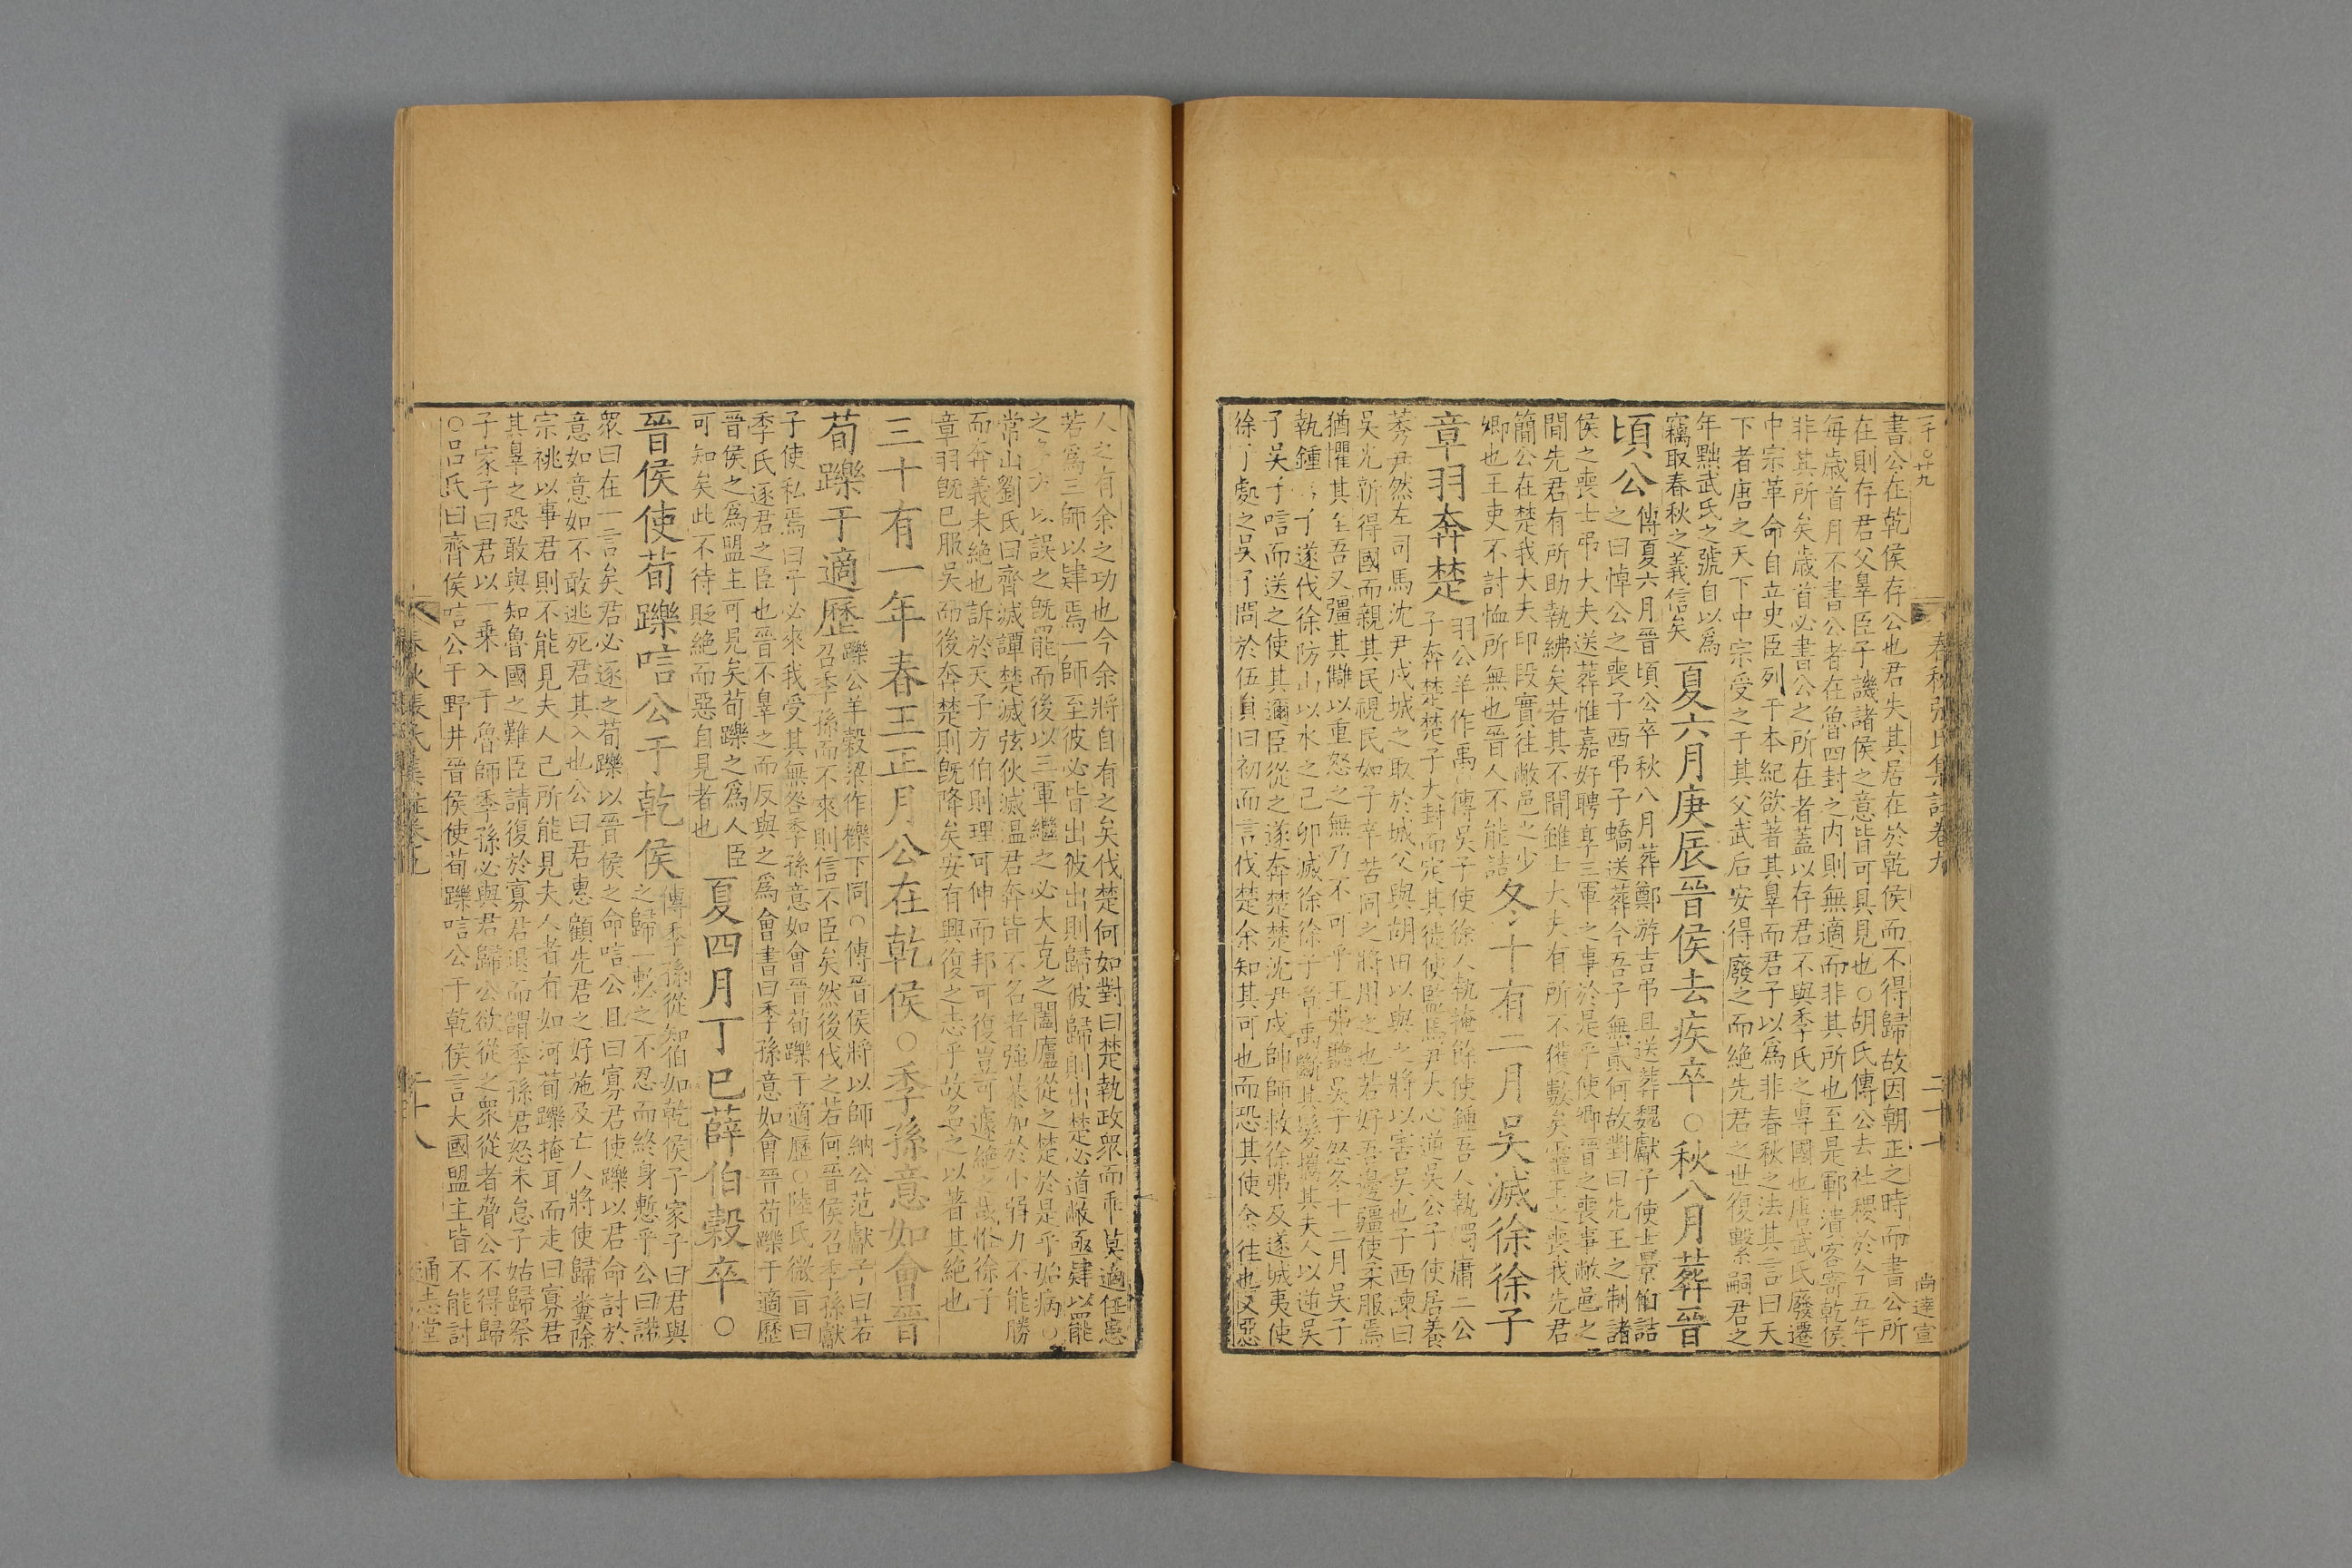 書公在乾侯存公也君失其居在於乾侯而不得歸故因朝正之時而書公所
在則存君父辠臣子譏諸侯之意皆可具見也○胡氏傳公去社稷於今五年
每歲首月不書公者在魯四封之内則無適而非其所也至是鄆潰客寄乾侯
非其所矣歲首必書公之所在者蓋以存君不與季氏之專國也唐武氏廢遷
中宗革命自立史臣列于本紀欲著其辠而君子以為非春秋之法其言曰天
下者唐之天下中宗受之于其父武后安得廢之而絶先君之世復繫嗣君之
年黜武氏之號自以爲
竊取春秋之義信矣
夏六月庚辰晉侯去疾卒○秋八月葬晉
頃公
傳夏六月晉頃公卒秋八月葬鄭游吉弔且送葬魏獻子使士景伯詰
之曰悼公之喪子西弔子蟜送葬今吾子無貳何故對曰先王之制諸
侯之喪士弔大夫送葬惟嘉好聘享三軍之事於是乎使卿晉之喪事敝邑之
閒先君有所助執紼矣若其不閒雖士大夫有所不獲數矣靈王之喪我先君
簡公在楚我大夫印段實往敝邑之少
卿也王吏不討恤所無也晉人不能詰
冬十有二月吳滅徐徐子
章羽奔楚
羽公羊作禹○傳吳子使徐人執掩餘使鍾吾人執燭庸二公
子奔楚楚子大封而定其徙使監馬尹大心逆吳公子使居養
莠尹然左司馬沈尹戌城之取於城父與胡田以與之將以害吳也子西諫曰
吳光新得國而親其民視民如子辛苦同之將用之也若好吾邊疆使柔服焉
猶懼其至吾又彊其讎以重怒之無乃不可乎王弗聽吳子怒冬十二月吳子
執鍾吾子遂伐徐防山以水之己卯滅徐徐子章禹斷其髮攜其夫人以逆吳
子吳子唁而送之使其邇臣從之遂奔楚楚沈尹戌帥師救徐弗及遂城夷使
徐子處之吳子問於伍員曰初而言伐楚余知其可也而恐其使余往也又惡
人之有余之功也今余將自有之矣伐楚何如對曰楚執政衆而乖莫適任患
若爲三師以肄焉一師至彼必皆出彼出則歸彼歸則出楚必道敝亟肄以罷
之多方以誤之旣罷而後以三軍繼之必大克之闔廬從之楚於是乎始病○
常山劉氏曰齊滅譚楚滅弦伙滅温君奔皆不名者強暴加於小弱力不能勝
而奔義未絶也訴於天子方伯則理可伸而邦可復豈可遽絶之哉惟徐子
章羽旣已服吳而後奔楚則旣降矣安有興復之志乎故名之以著其絶也
三十有一年春王正月公在乾侯○季孫意如會晉
荀躒于適歷
躒公羊穀梁作櫟下同○傳晉侯將以師納公范獻子曰若
召季孫而不來則信不臣矣然後伐之若何晉侯召季孫獻
子使私焉曰子必來我受其無咎季孫意如會晉荀躒于適歷○陸氏微旨曰
季氏逐君之臣也晉不辠之而反與之爲會書曰季孫意如會晉荀躒于適歷
晉侯之爲盟主可見矣荀躒之爲人臣
可知矣此不待貶絶而惡自見者也
夏四月丁巳薛伯穀卒○
晉侯使荀躒唁公于乾侯
傳季孫從知伯如乾侯子家子曰君與
之歸一慙之不忍而終身慙乎公曰諾
衆曰在一言矣君必逐之荀躒以晉侯之命唁公且曰寡君使躒以君命討於
意如意如不敢逃死君其入也公曰君惠顧先君之好施及亡人將使歸糞除
宗祧以事君則不能見夫人己所能見夫人者有如河荀躒掩耳而走曰寡君
其辠之恐敢與知魯國之難臣請復於寡君退而謂季孫君怒未怠子姑歸祭
子家子曰君以一乘入于魯師季孫必與君歸公欲從之衆從者脅公不得歸
○呂氏曰齊侯唁公于野井晉侯使荀躒唁公于乾侯言大國盟主皆不能討
春秋張氏集註卷九
二十八
通志堂